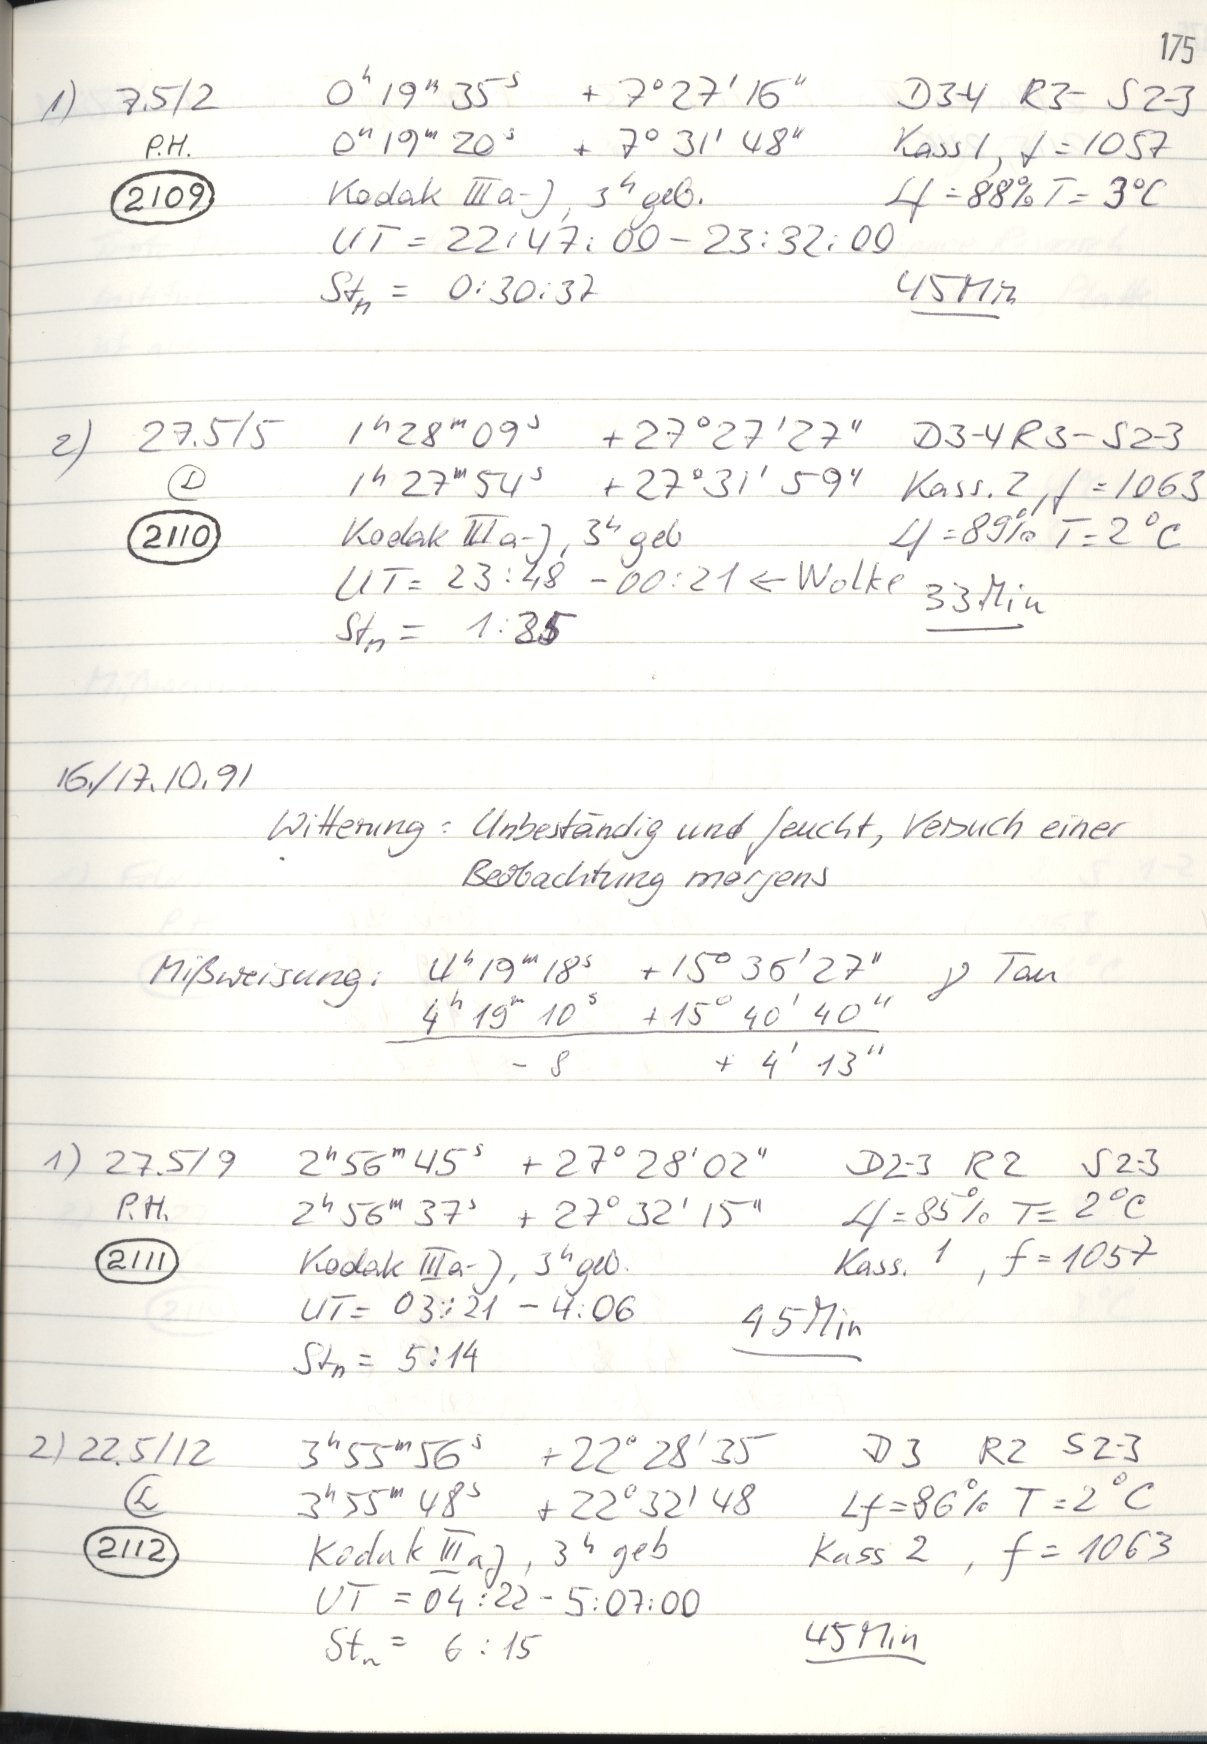 175
1) 7.5/2 0ʰ 19ᵐ 35ˢ + 7° 27' 16" D3-4 R3- S2-3
P.H. 0ʰ 19ᵐ 20ˢ + 7° 31' 48" Kass 1, f = 1057
2109 Kodak IIIa-J, 3ʰ geb. Lf = 88% T = 3°C
UT = 22:47:00 - 23:32:00
Stₙ = 0:30:37 45 Min
2) 27.5/5 1ʰ 28ᵐ 09ˢ + 27° 27' 27" D3-4 R3- S2-3
1ʰ 27ᵐ 54ˢ + 27° 31' 59" Kass. 2, f = 1063
2110 Kodak IIIa-J, 3ʰ geb Lf = 89% T = 2°C
UT = 23:48 - 00:21 ← Wolke 33 Min
Stₙ = 1:35
16./17.10.91
Witterung: Unbeständig und feucht, Versuch einer
Beobachtung morgens
Mißweisung: 4ʰ 19ᵐ 18ˢ + 15° 36' 27" γ Tau
4ʰ 19ᵐ 10ˢ + 15° 40' 40"
- 8 + 4' 13"
1) 27.5/9 2ʰ 56ᵐ 45ˢ + 27° 28' 02" D2-3 R2 S2-3
P.H. 2ʰ 56ᵐ 37ˢ + 27° 32' 15" Lf = 85% T = 2°C
2111 Kodak IIIa-J, 3ʰ geb. Kass. 1, f = 1057
UT = 03:21 - 4:06 45 Min
Stₙ = 5:14
2) 22.5/12 3ʰ 55ᵐ 56ˢ + 22° 28' 35 D3 R2 S2-3
3ʰ 55ᵐ 48ˢ + 22° 32' 48 Lf = 86% T = 2°C
2112 Kodak IIIaJ, 3ʰ geb Kass 2, f = 1063
UT = 04:22 - 5:07:00
Stₙ = 6:15 45 Min